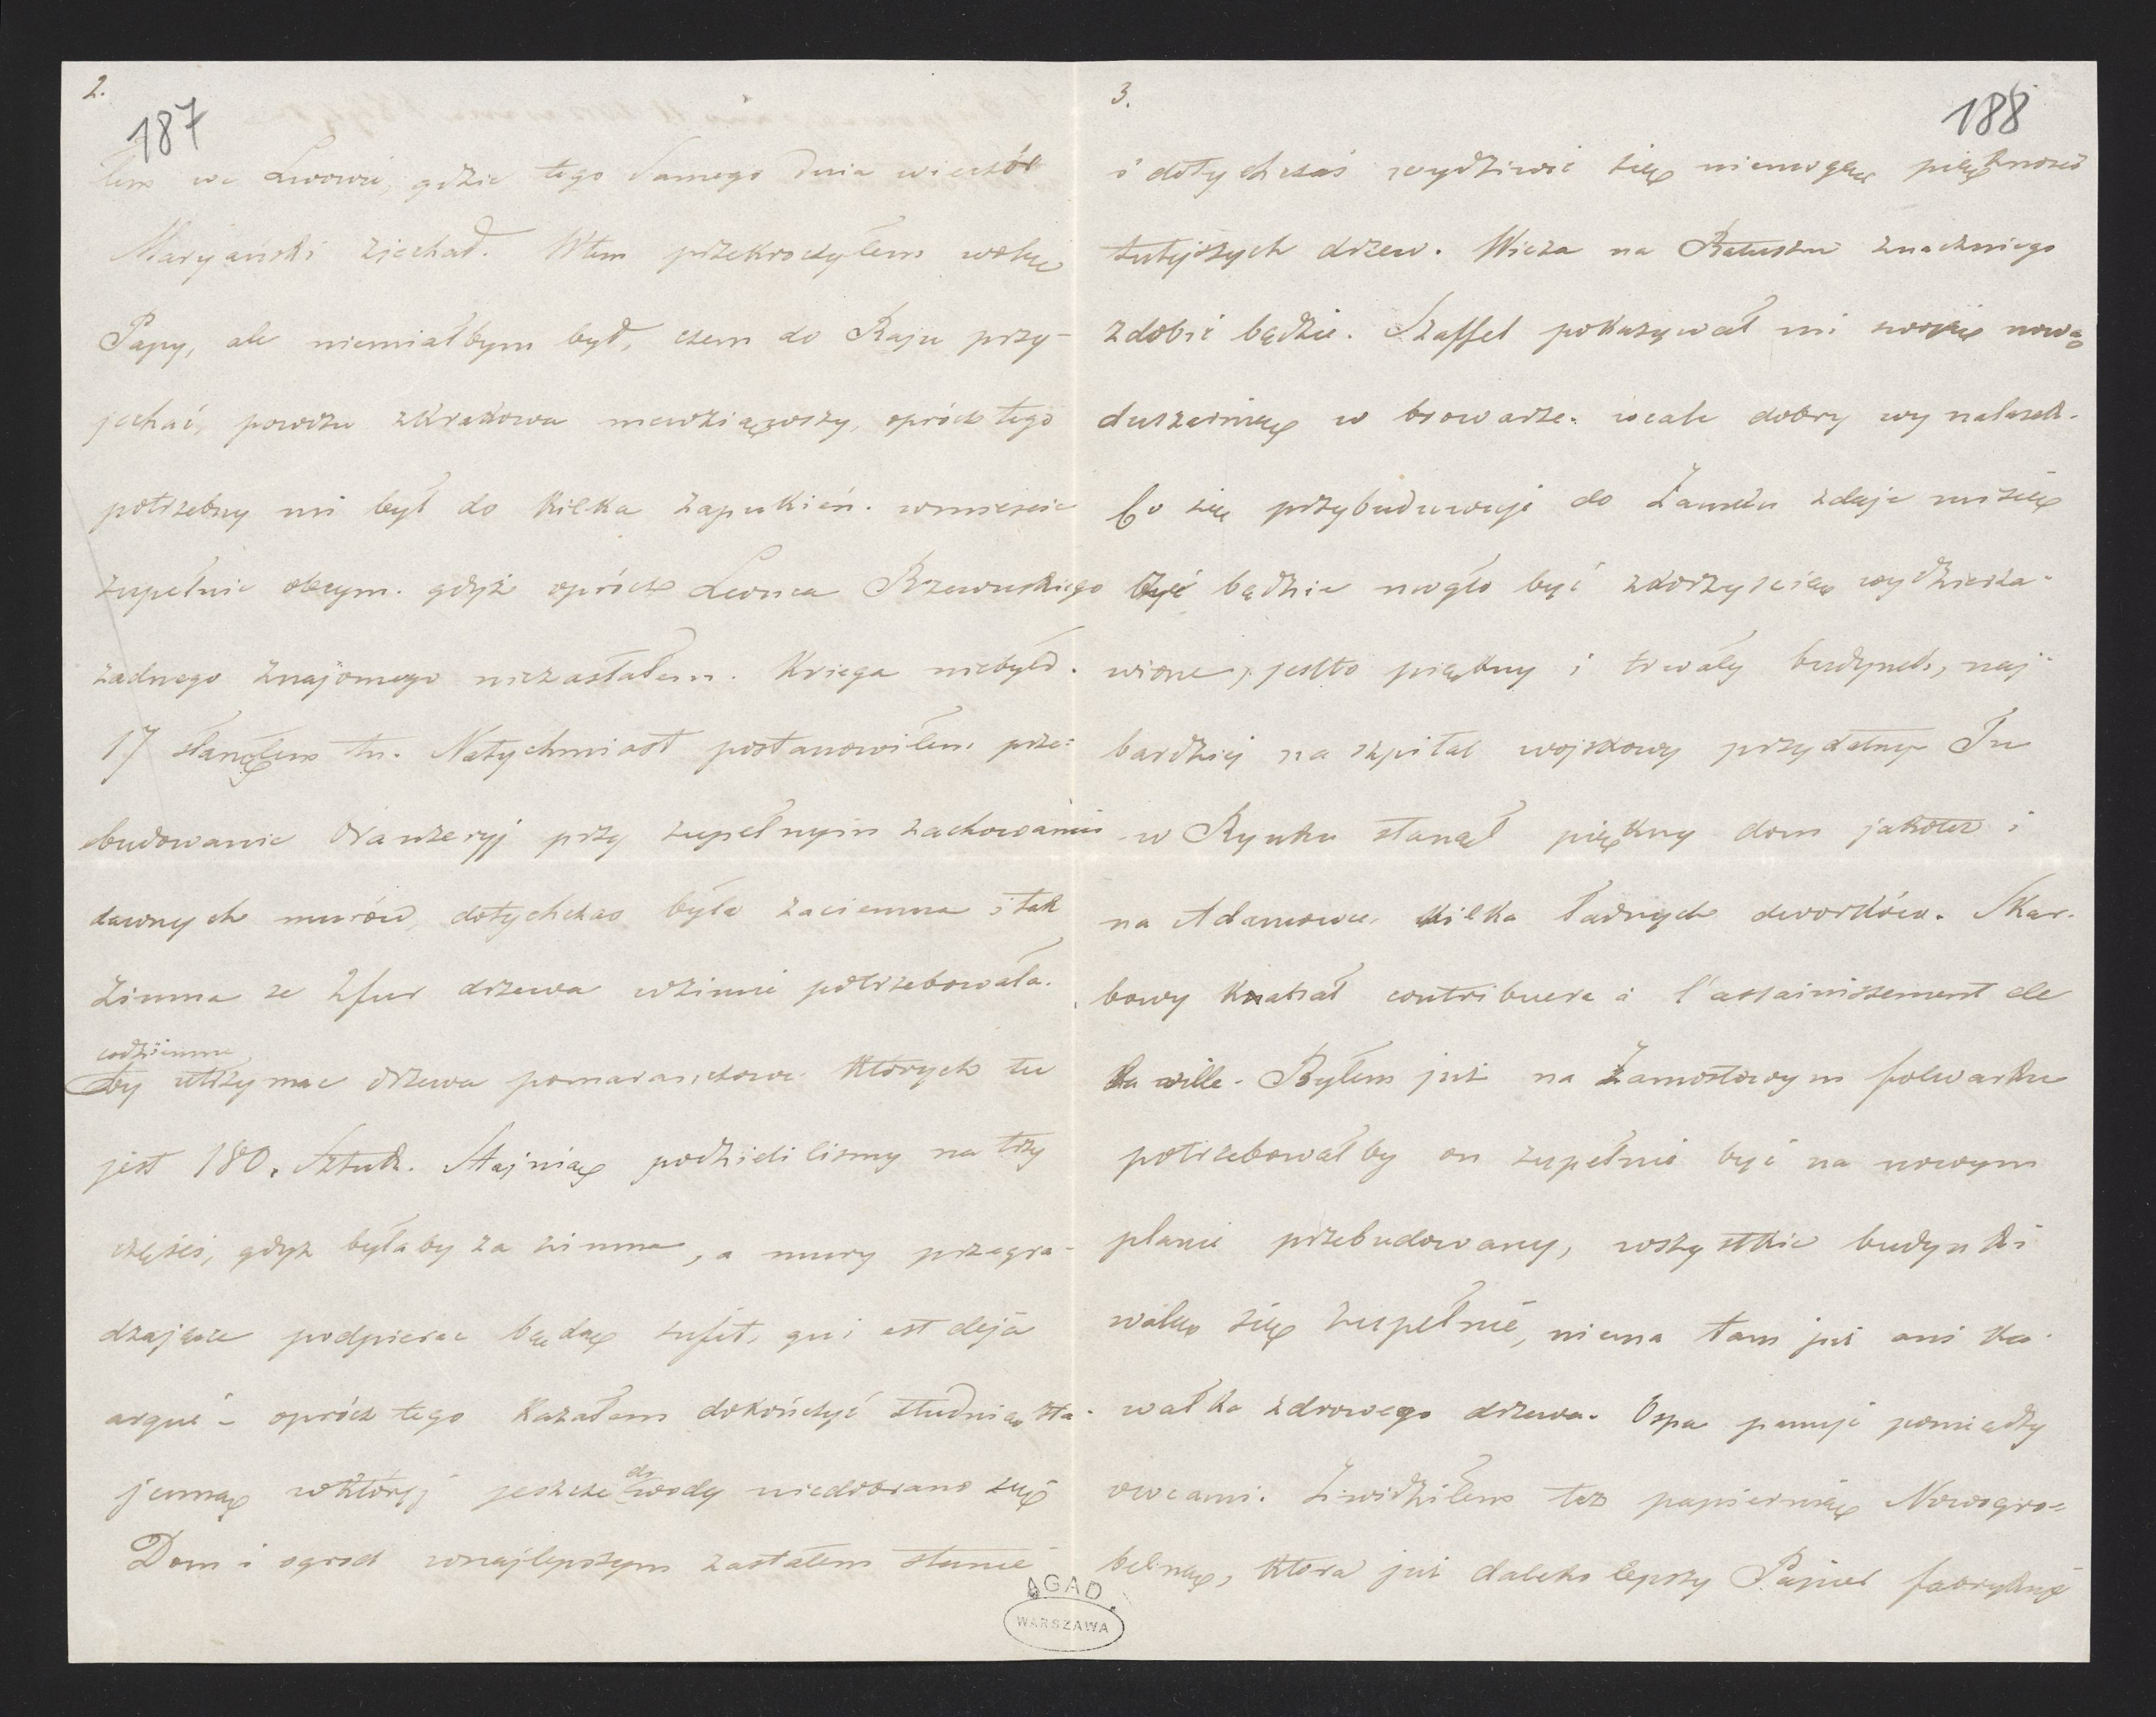 2.
187
łem we Lwowie, gdzie tego samego dnia wieczór
Maryański zjechał. Wtem przekroczyłem wolę
Papy, ale niemiałbym był, czem do Raju przy-
jechać, powozu zKrakowa niewziąwszy, oprócz tego
potrzebny mi był do kilka zapukień. wmieście
zupełnie obcym. gdyż oprócz Leona Rzewuskiego
żadnego znajomego niezastałem. Kriega niebyło.
17 stanąłem tu. Natychmiast postanowiłem prze-
budowanie Oranżeryj przy zupełnym zachowaniu
dawnych murów, dotychczas była zaciemna i tak
zimna ze 2 fur drzewa wzimie potrzebowała
codziennie
by utrzymac drzewa pomarańczowe których tu
jest 180. Sztuk. Stajnię podzielilismy na trzy
części, gdyż byłaby za zimna, a mury przegra-
dzające podpierac będą sufit, qui est déja
arqué - oprócz tego kazałem dokończyć studnię sta-
jenną wktórej jeszcze do wody niedobrano się
Dom i ogrod wnajlepszym zastałem stanie
AGAD
WARSZAWA
3.
188
i dotychczas wydziwić się niemogę piękności
tutejszych drzew. Wieża na Ratuszu znacznie go
zdobić będzie. Szaffel pokazywał mi swoję nową
suszarnię w browarze. wcale dobry wynalazek.
Co się przybudowuje do Zamku zdaje mi się
być będzie mogło być zkorzyścią wydzierża-
wione, jestto piękny i trwały budynek, naj-
bardziej na szpital wojskowy przydatny Tu
w Rynku stanął piękny dom jakoteż i
na Adamowce kilka ładnych dworków. Skar-
bowy kanał contribuera à l'assainissement de
la ville. Byłem już na Zamostowym folwarku
potrzebowałby on zupełnie być na nowym
planie przebudowany, wszystkie budynki
walą się zupełnie, niema tam już ani ka-
wałka zdrowego drzewa. Ospa panuje pomiędzy
owcami. Zwidziłem też papiernię Nowogro-
belną, ktora już daleko lepszy Papier fabrykuje